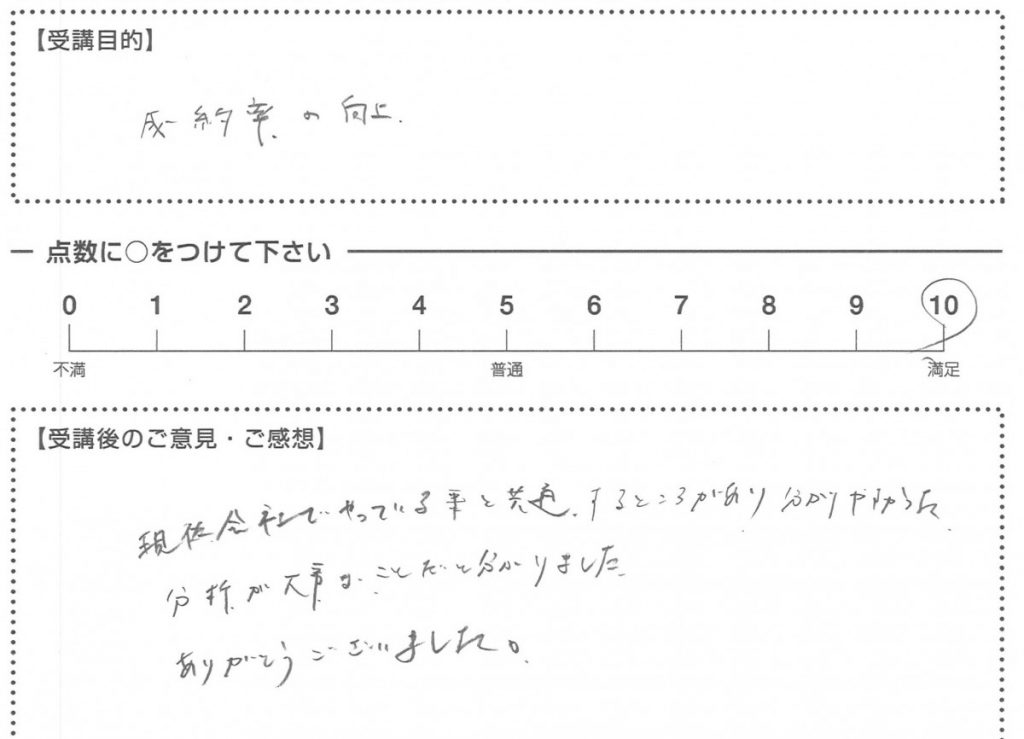 【受講目的】
成約率の向上.
点数に○をつけて下さい
0 1 2 3 4 5 6 7 8 9 10
不満 普通 満足
【受講後のご意見・ご感想】
現在会社でやっている事と共通するところがあり分かりやすかった
分析が大事なことだと分かりました
ありがとうございました。